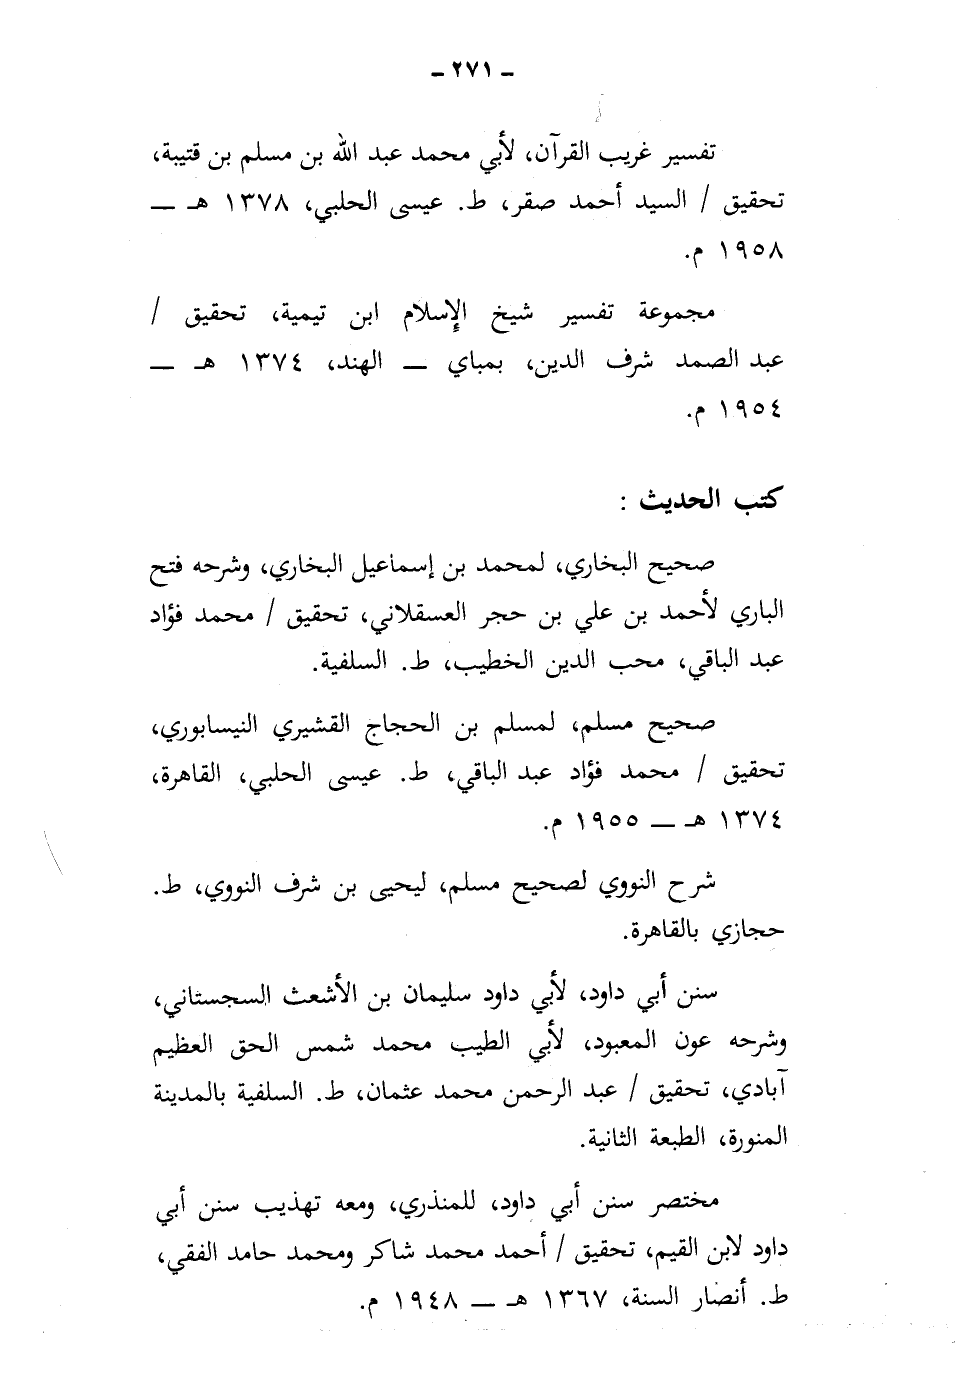 ـ ٢٧١ ـ
تفسير غريب القرآن، لأبي محمد عبد الله بن مسلم بن قتيبة،
تحقيق / السيد أحمد صقر، ط. عيسى الحلبي، ١٣٧٨ هـ ـــ
١٩٥٨ م.
مجموعة تفسير شيخ الإسلام ابن تيمية، تحقيق /
عبد الصمد شرف الدين، بمباي ـــ الهند، ١٣٧٤ هـ ـــ
١٩٥٤ م.
كتب الحديث :
صحيح البخاري، لمحمد بن إسماعيل البخاري، وشرحه فتح
الباري لأحمد بن علي بن حجر العسقلاني، تحقيق / محمد فؤاد
عبد الباقي، محب الدين الخطيب، ط. السلفية.
صحيح مسلم، لمسلم بن الحجاج القشيري النيسابوري،
تحقيق / محمد فؤاد عبد الباقي، ط. عيسى الحلبي، القاهرة،
١٣٧٤ هـ ـــ ١٩٥٥ م.
شرح النووي لصحيح مسلم، ليحيى بن شرف النووي، ط.
حجازي بالقاهرة.
سنن أبي داود، لأبي داود سليمان بن الأشعث السجستاني،
وشرحه عون المعبود، لأبي الطيب محمد شمس الحق العظيم
آبادي، تحقيق / عبد الرحمن محمد عثمان، ط. السلفية بالمدينة
المنورة، الطبعة الثانية.
مختصر سنن أبي داود، للمنذري، ومعه تهذيب سنن أبي
داود لابن القيم، تحقيق / أحمد محمد شاكر ومحمد حامد الفقي،
ط. أنصار السنة، ١٣٦٧ هـ ـــ ١٩٤٨ م.